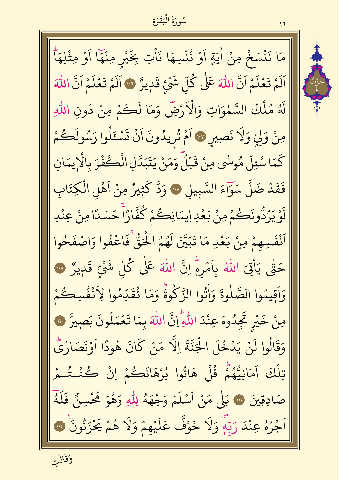 سُورَةُ الْبَقَرَةِ
١٦
مَا نَنْسَخْ مِنْ اٰيَةٍ اَوْ نُنْسِهَا نَأْتِ بِخَيْرٍ مِنْهَٓا اَوْ مِثْلِهَاۜ
اَلَمْ تَعْلَمْ اَنَّ اللّٰهَ عَلٰى كُلِّ شَيْءٍ قَدٖيرٌ ﴿١٠٦﴾ اَلَمْ تَعْلَمْ اَنَّ اللّٰهَ
لَهُ مُلْكُ السَّمٰوَاتِ وَالْاَرْضِۜ وَمَا لَكُمْ مِنْ دُونِ اللّٰهِ
مِنْ وَلِيٍّ وَلَا نَصٖيرٍ ﴿١٠٧﴾ اَمْ تُرٖيدُونَ اَنْ تَسْـَٔلُوا رَسُولَكُمْ
كَمَا سُئِلَ مُوسٰى مِنْ قَبْلُۜ وَمَنْ يَتَبَدَّلِ الْكُفْرَ بِالْاٖيمَانِ
فَقَدْ ضَلَّ سَوَٓاءَ السَّبٖيلِ ﴿١٠٨﴾ وَدَّ كَثٖيرٌ مِنْ اَهْلِ الْكِتَابِ
لَوْ يَرُدُّونَكُمْ مِنْ بَعْدِ اٖيمَانِكُمْ كُفَّارًاۚ حَسَدًا مِنْ عِنْدِ
اَنْفُسِهِمْ مِنْ بَعْدِ مَا تَبَيَّنَ لَهُمُ الْحَقُّۚ فَاعْفُوا وَاصْفَحُوا
حَتّٰى يَأْتِيَ اللّٰهُ بِاَمْرِهٖۜ اِنَّ اللّٰهَ عَلٰى كُلِّ شَيْءٍ قَدٖيرٌ ﴿١٠٩﴾
وَاَقٖيمُوا الصَّلٰوةَ وَاٰتُوا الزَّكٰوةَۜ وَمَا تُقَدِّمُوا لِاَنْفُسِكُمْ
مِنْ خَيْرٍ تَجِدُوهُ عِنْدَ اللّٰهِۜ اِنَّ اللّٰهَ بِمَا تَعْمَلُونَ بَصٖيرٌ ﴿١١٠﴾
وَقَالُوا لَنْ يَدْخُلَ الْجَنَّةَ اِلَّا مَنْ كَانَ هُودًا اَوْ نَصَارٰىۜ
تِلْكَ اَمَانِيُّهُمْۜ قُلْ هَاتُوا بُرْهَانَكُمْ اِنْ كُنْتُمْ
صَادِقٖينَ ﴿١١١﴾ بَلٰى مَنْ اَسْلَمَ وَجْهَهُ لِلّٰهِ وَهُوَ مُحْسِنٌ فَلَهُٓ
اَجْرُهُ عِنْدَ رَبِّهٖۖ وَلَا خَوْفٌ عَلَيْهِمْ وَلَا هُمْ يَحْزَنُونَ ﴿١١٢﴾
وَقَالَتِ